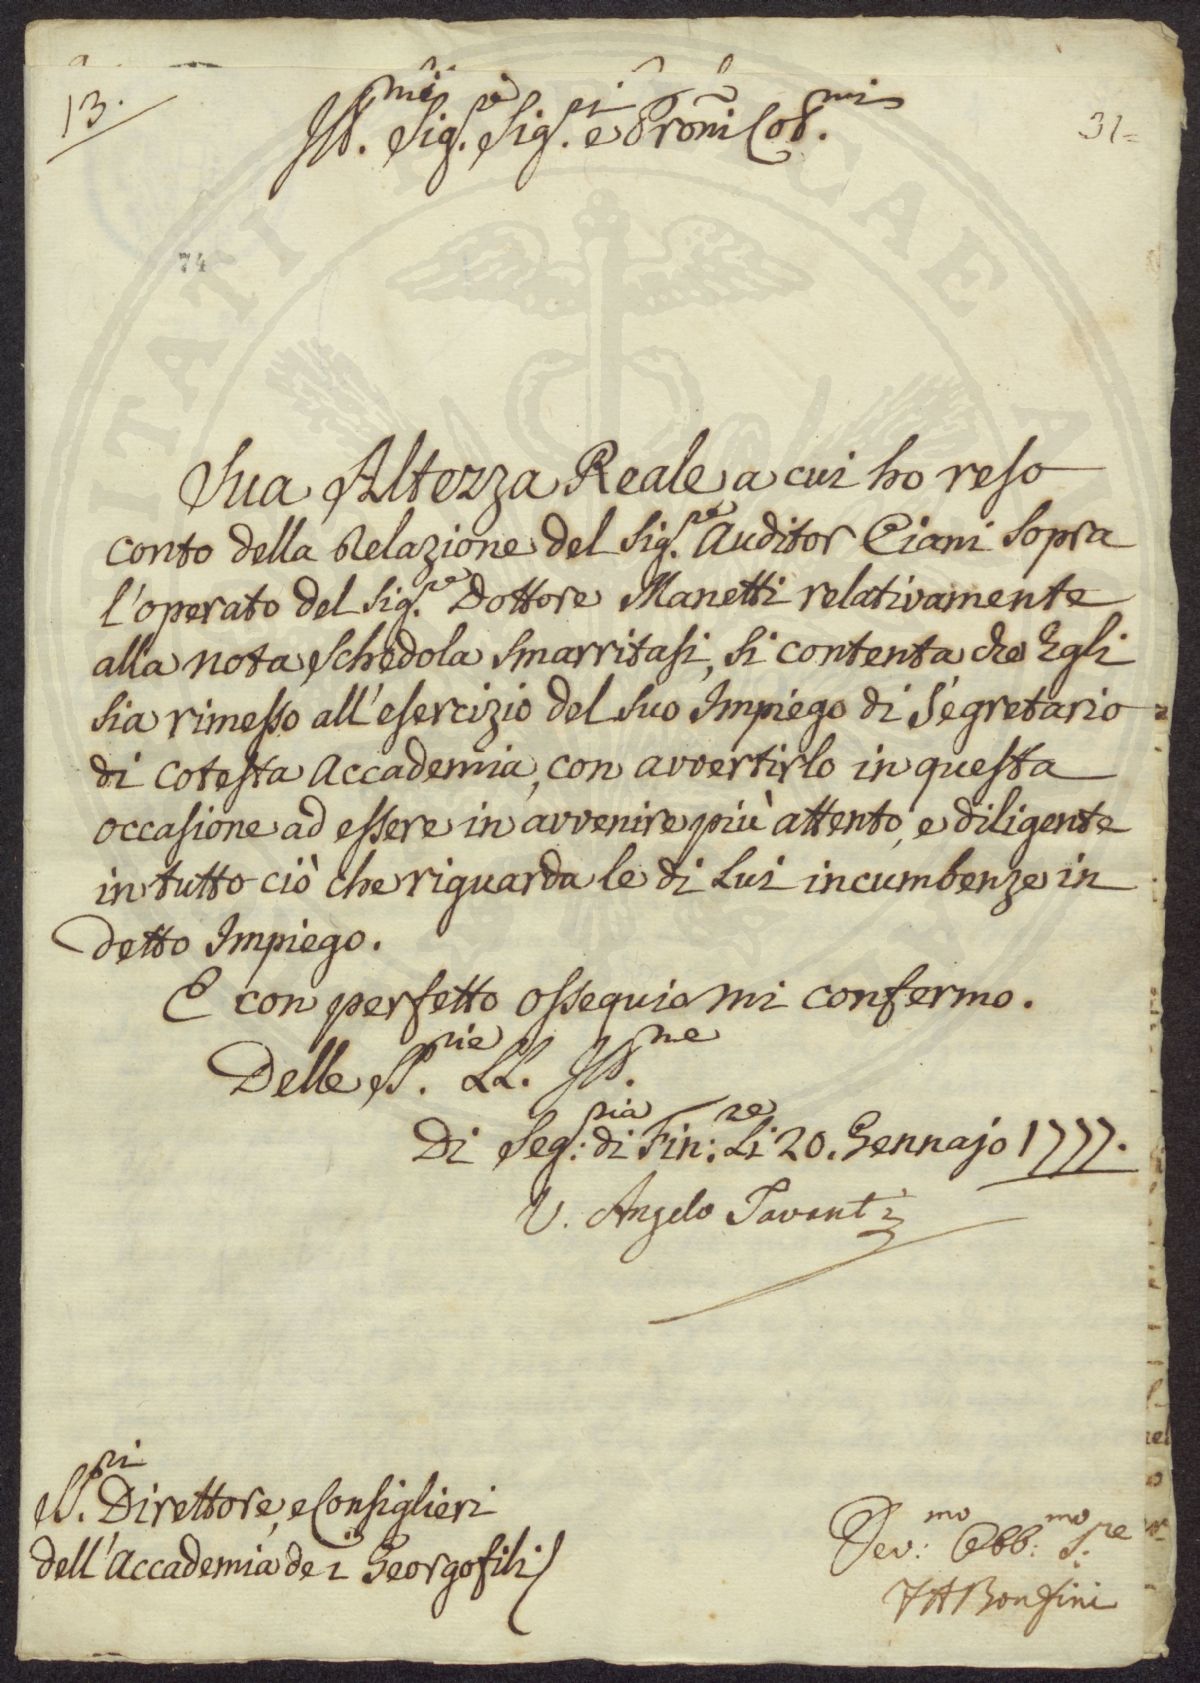 13.
31=
Ill.mi Sig.re Sig.ri e Proñi Col.mi
74
Sua Altezza Reale a cui ho reso
conto della Relazione del Sig.re Auditor Ciani sopra
l'operato del Sig.re Dottore Manetti relativamente
alla nota Schedola smarritasi, si contenta che Egli
sia rimesso all'esercizio del suo Impiego di Segretario
di cotesta Accademia, con avvertirlo in questa
occasione ad essere in avvenire più attento, e diligente
in tutto ciò che riguarda le di Lui incumbenze in
detto Impiego.
E con perfetto ossequio mi confermo.
Delle SS.rie LL. Ill.me
Di Seg:ria di Fin:ze Li 20. Gennajo 1777.
V. Angelo Tavanti
SS.ri Direttore, e Consiglieri
dell'Accademia dei Georgofili
Dev:mo Obb:mo S:re